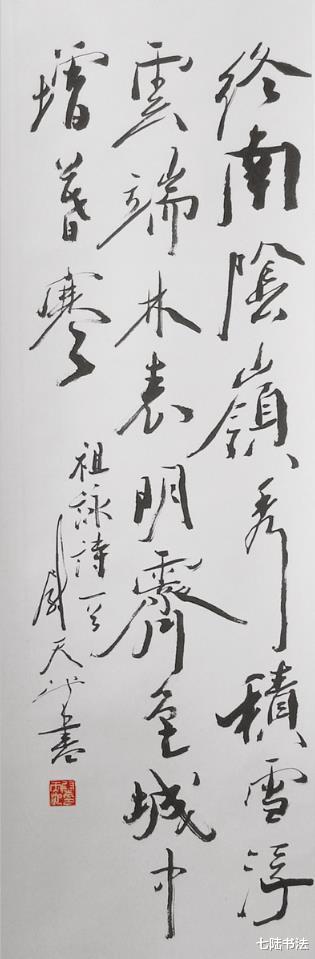 終南陰嶺秀積雪浮
雲端林表明霽色城中
增暮寒
祖詠詩一首
尉天池書
七陆书法